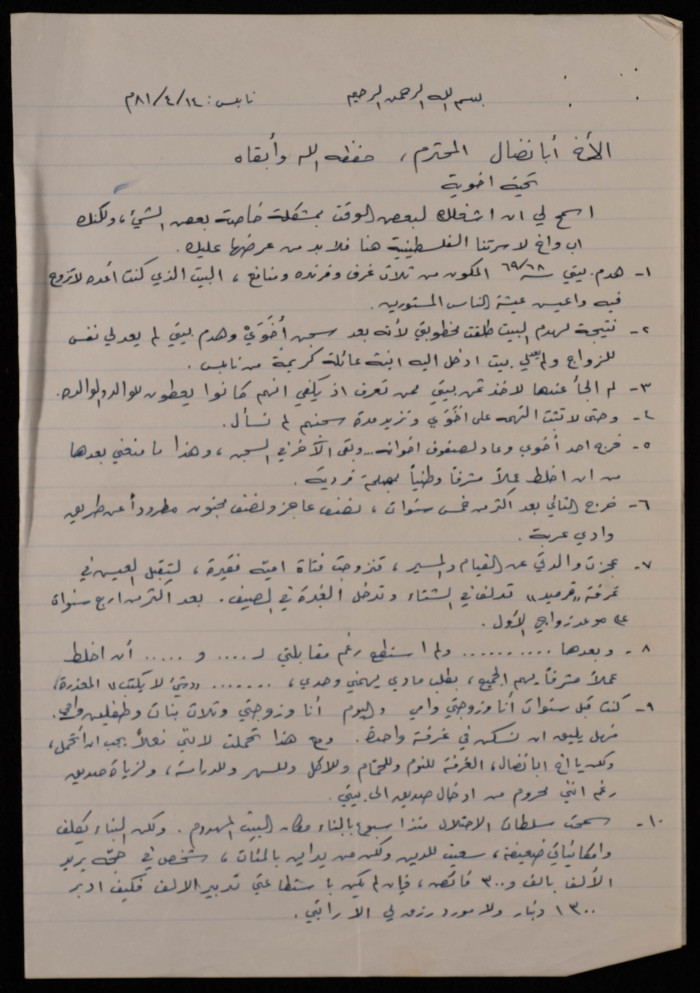 بسم الله الرحمن الرحيم
نابلس: ١٤/٤/٨١م
الأخ أبا نضال المحترم، حفظه الله وأبقاه
تحية اخوية
اسمح لي ان اشغلك لبعض الوقت بمشكلة خاصة بعض الشيء، ولكنك
اب واخ لاسرتنا الفلسطينية هنا فلا بد من عرضها عليك.
١- هدم بيتي سنة ٦٨/٦٩ المكون من ثلاث غرف وفرنده ومنافع، البيت الذي كنت أعده لاتزوج
فيه واعيش عيشة الناس المستورين.
٢- نتيجة لهدم البيت طلقت مخطوبتي لأنه بعد سجن أخَوَيْ وهدم بيتي لم يعد لي نفس
للزواج ولم يعد لي بيت ادخل اليه ابنة عائلة كريمة من نابلس.
٣- لم الجأ عندها لاخذ ثمن بيتي ممن تعرف اذ يكفي انهم كانوا يعطون للوالد والوالده.
٤- وحتى لا تثبت التهمه على أخَوَي وتزيد مدة سجنهم لم نسأل.
٥- خرج احد أخوي وعاد لصفوف اخوانه.. وبقي الآخر في السجن، وهذا ما منعني بعدها
من ان اخلط عملاً مشرفاً وطنياً بمصلحة فردية.
٦- خرج الثاني بعد اكثر من خمس سنوات، نصف عاجز ونصف مجنون مطروداً عن طريق
وادي عربة.
٧- عجزت والدتي عن القيام والمسير، فتزوجت فتاة اميه فقيرة، لتقبل العيش في
غرفة «قرميد» تدلف في الشتاء وتدخل الغبرة في الصيف. بعد اكثر من اربع سنوات
على موعد زواجي الأول.
٨- وبعدها .......... ولم استطع رغم مقابلتي لـ .... و ..... أن اخلط
عملاً مشرفاً يهم الجميع، بطلب مادي يهمني وحدي، ....... «وشيء لا يكتب» المعذرة/
٩- كنت قبل سنوات أنا وزوجتي وامي واليوم أنا وزوجتي وثلاث بنات وطفلين وامي.
فهل يليق ان نسكن في غرفة واحدة. ومع هذا تحملت لانني فعلاً يجب ان أتحمل،
ولكن يا اخ ابا نضال، الغرفة للنوم وللحمام وللاكل وللسهر وللدراسة، ولزيارة صديق
رغم انني محروم من ادخال صديق الى بيتي.
١٠- سمحت سلطات الاحتلال منذ اسبوع بالبناء مكان البيت المهدوم. ولكن البناء يكلف
وامكانياتي ضعيفة، سعيت للدين ولكن من يداين بالمئات، شخص في جهة يريد
الألف بالف و٣٠٠ فائض، فإن لم يكن باستطاعتي تدبير الالف فكيف ادبر
١٣٠٠ دينار ولا مورد رزق لي الا راتبي.